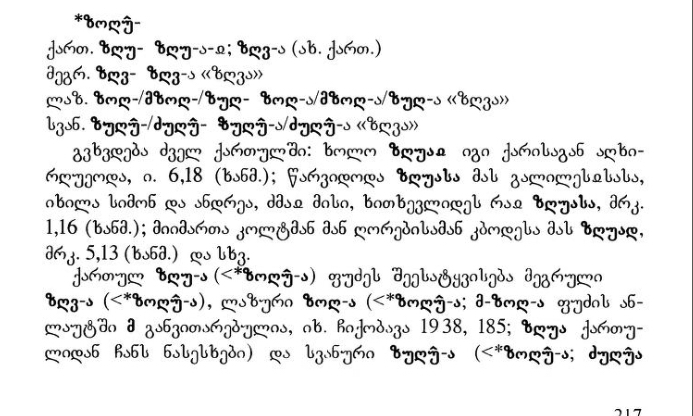 *ზოღუ̂-
ქართ. ზღუ- ზღუ-ა-ჲ; ზღვ-ა (ახ. ქართ.)
მეგრ. ზღვ- ზღვ-ა «ზღვა»
ლაზ. ზოღ-/მზოღ-/ზუღ- ზოღ-ა/მზოღ-ა/ზუღ-ა «ზღვა»
სვან. ზუღუ̂-/ძუღუ̂- ზუღუ̂-ა/ძუღუ̂-ა «ზღვა»
გვხვდება ძველ ქართულში: ხოლო ზღუაჲ იგი ქარისაგან აღხი-
რღუეოდა, ი. 6,18 (ხანმ.); წარვიდოდა ზღუასა მას გალილესჲსასა,
იხილა სიმონ და ანდრეა, ძმაჲ მისი, ხითხევლიდეს რაჲ ზღუასა, მრკ.
1,16 (ხანმ.); მიიმართა კოლტმან მან ღორებისამან კბოდესა მას ზღუად,
მრკ. 5,13 (ხანმ.) და სხვ.
ქართულ ზღუ-ა (<*ზოღუ̂-ა) ფუძეს შეესატყვისება მეგრული
ზღვ-ა (<*ზოღუ̂-ა), ლაზური ზოღ-ა (<*ზოღუ̂-ა; მ-ზოღ-ა ფუძის ან-
ლაუტში მ განვითარებულია, იხ. ჩიქობავა 1938, 185; ზღუა ქართუ-
ლიდან ჩანს ნასესხები) და სვანური ზუღუ̂-ა (<*ზოღუ̂-ა; ძუღუ̂ა
217